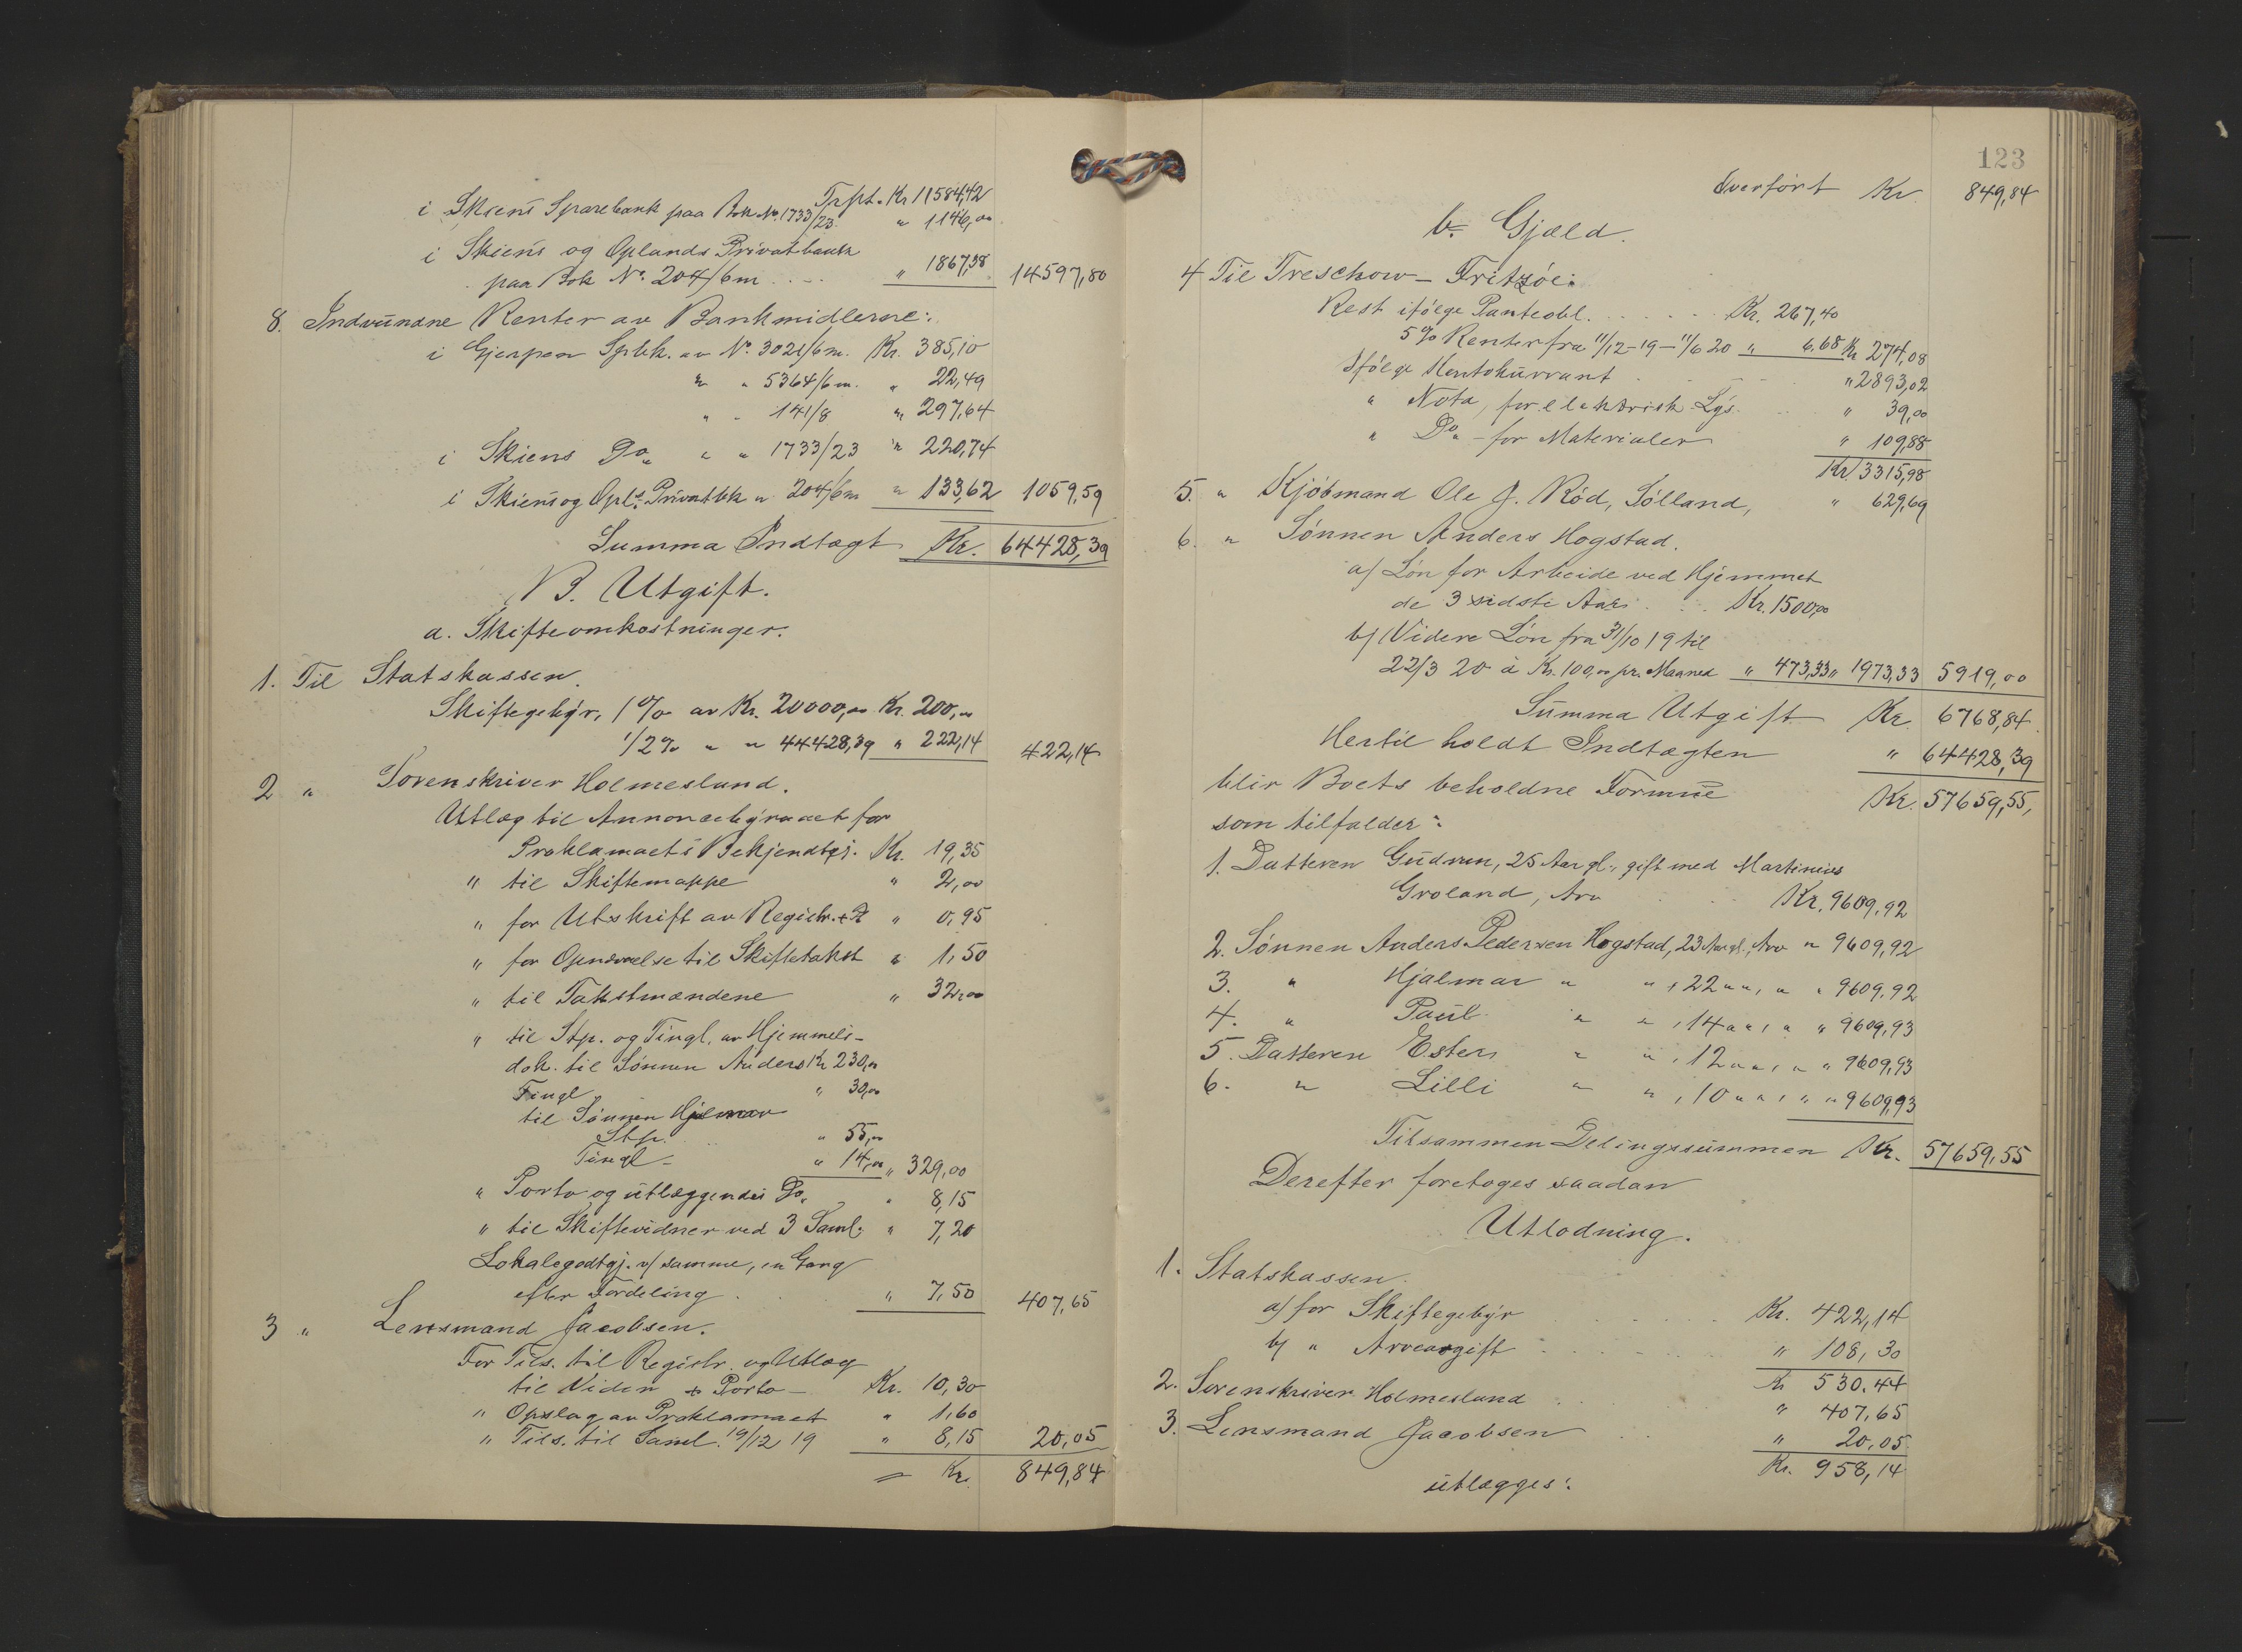 Trpt. Kr 11584,42
i Skiens Sparebank paa Bok No. 1733/23 " 1146,00
i Skiens og Oplands Privatbank
paa Bok No. 204/6m . . . . " 1867,38 14597,80
8. Indvundne Renter av Bankmidlerne:
i Gjerpen Spbk. av No. 3021/6m. Kr. 385,10
" " 5364/6m. " 22,49
" " 141/8 " 297,64
i Skiens Do " " 1733/23 " 220,74
i Skiens og Opl. Privatbk " 204/6m " 133,62 1059,59
Summa Indtægt Kr. 64428,39
B. Utgift.
a. Skifteomkostninger.
1. Til Statskassen.
Skiftegebyr, 1% av Kr. 20000,00 Kr. 200,00
1/2% " " 44428,39 " 222,14 422,14
2 " Sorenskriver Holmesland.
Utlæg til Annoncebyraaet for
Proklamaets Bekjendtgj. Kr. 19,35
" til Skiftemappe " 2,00
" for Utskrift av Registr. " 0,95
" for Opnævnelse til Skiftetakst " 1,50
" til Takstmændene " 32,00
" til Stp. og Tingl. av Hjemmels-
dok. til Sønnen Anders Kr 230,00
Tingl. " 30,00
til Sønnen Hjalmar
Stp. " 55,00
Tingl. " 14,00 " 329,00
" Porto og utlæggendes Do " 8,15
" til Skiftevidner ved 3 Saml. " 7,20
Lokalegodtgj. v/ samme, en Gang
efter Fordeling . . " 7,50 407,65
3 " Lensmand Jacobsen.
For Tils. til Registr. og Utlæg
til Viden + Porto - Kr. 10,30
" Opslag av Proklamaet " 1,60
" Tils. til Saml. 19/12 19 " 8,15 20,05
= Kr. 849,84
123
Overført Kr. 849,84
b. Gjæld.
4 Til Treschow-Fritzøe:
Rest ifølge Panteobl. . . . . . Kr. 267,40
5% Renter fra 11/12-19 - 11/6 20 " 6.68 Kr 274,08
Ifølge Kontokurrant . . . " 2893,02
" Nota, for elektrisk Lys. " 39,00
" Do - for Materialer " 109,88
Kr. 3315,98
5. " Kjøbmand Ole J. Rød, Sølland, " 629,69
6. " Sønnen Anders Hogstad.
a/ Løn for Arbeide ved Hjemmet
de 3 sidste Aar . . . Kr. 1500,00
b/ Videre Løn fra 31/10 19 til
22/3 20 à Kr. 100,00 pr. Maaned " 473,33 " 1973,33 5919,00
Summa Utgift Kr. 6768,84
Hertil holdt Indtægten " 64428,39
blir Boets beholdne Formue Kr. 57659,55,
som tilfalder:
1. Datteren Gudrun, 25 Aar gl., gift med Martinius
Groland, Arv . . . Kr. 9609,92
2. Sønnen Anders Pedersen Hogstad, 23 Aar gl., Arv " 9609,92
3. " Hjalmar " " , 22 " " , " " 9609,92
4. " Paul " " , 14 " " , " " 9609,93
5. Datteren Ester " " , 12 " " , " " 9609,93
6. " Lilli " " , 10 " " , " " 9609,93
Tilsammen Delingssummen Kr. 57659,55
Derefter foretoges saadan
Utlodning.
1. Statskassen.
a/ for Skiftegebyr . . . . . Kr. 422,14
b/ " Arveavgift . . . . . " 108,30
Kr 530.44
2. Sorenskriver Holmesland . . " 407,65
3. Lensmand Jacobsen . . " 20,05
Kr. 958,14
utlægges: